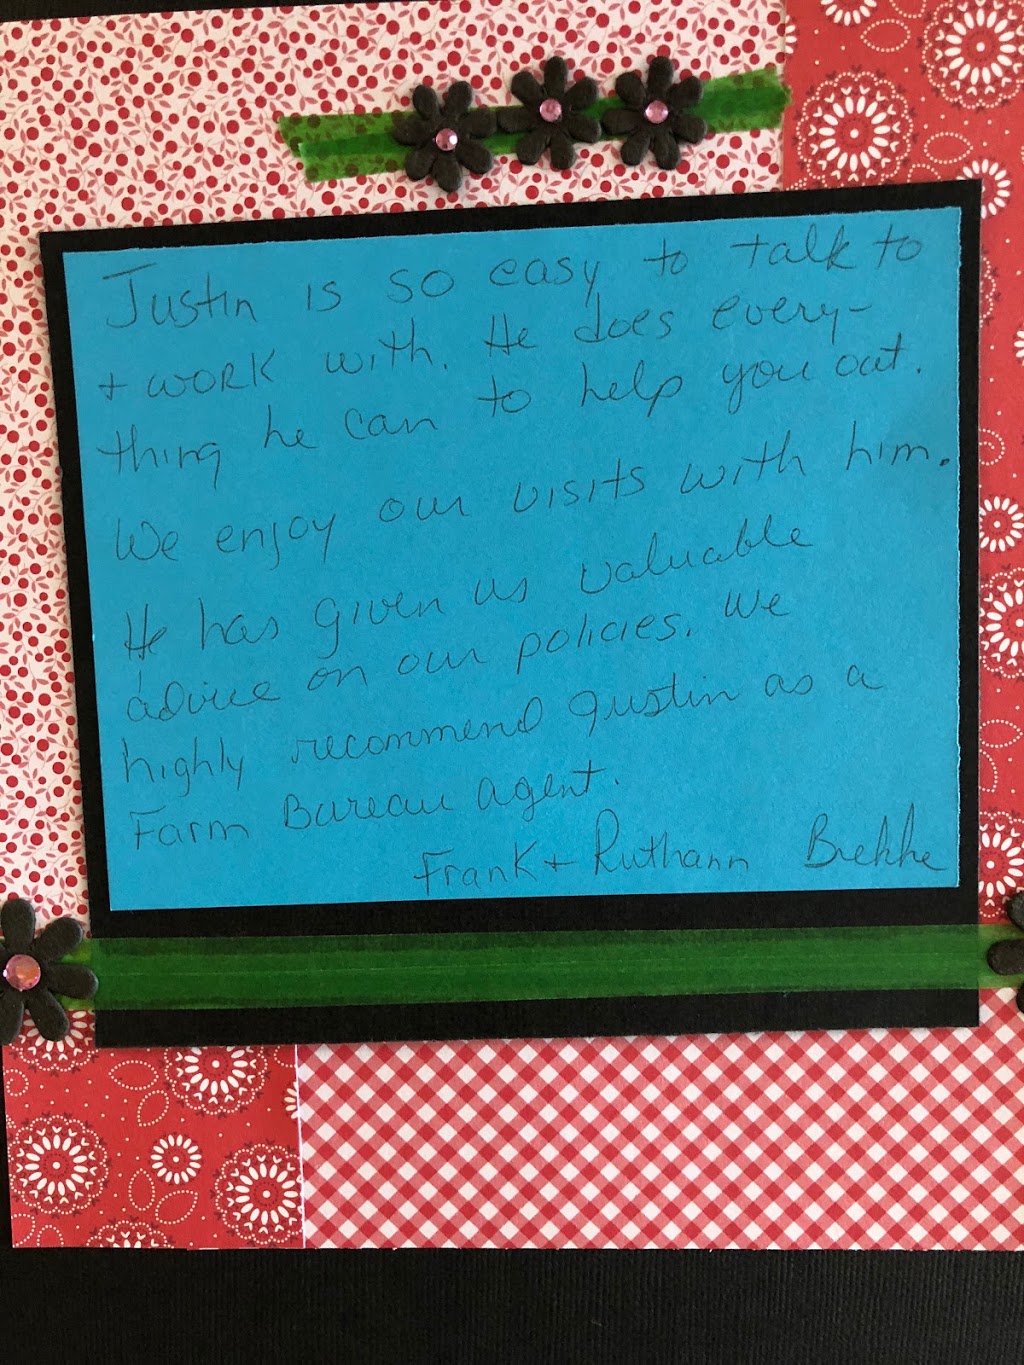 Justin is so easy to talk to
+ work with. He does every-
thing he can to help you out.
We enjoy our visits with him.
He has given us valuable
advice on our policies. We
highly recommend Justin as a
Farm Bureau agent.
Frank + Ruthann Brekke